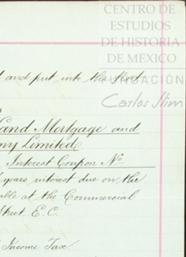 CENTRO DE
ESTUDIOS
DE HISTORIA
DE MEXICO
and put into the
FUNDACIÓN
Carlos Slim
Land Mortgage and
ny Limited
Interest Coupon No
years interest due on the
able at the Commercial
Street E.C.
Income Tax